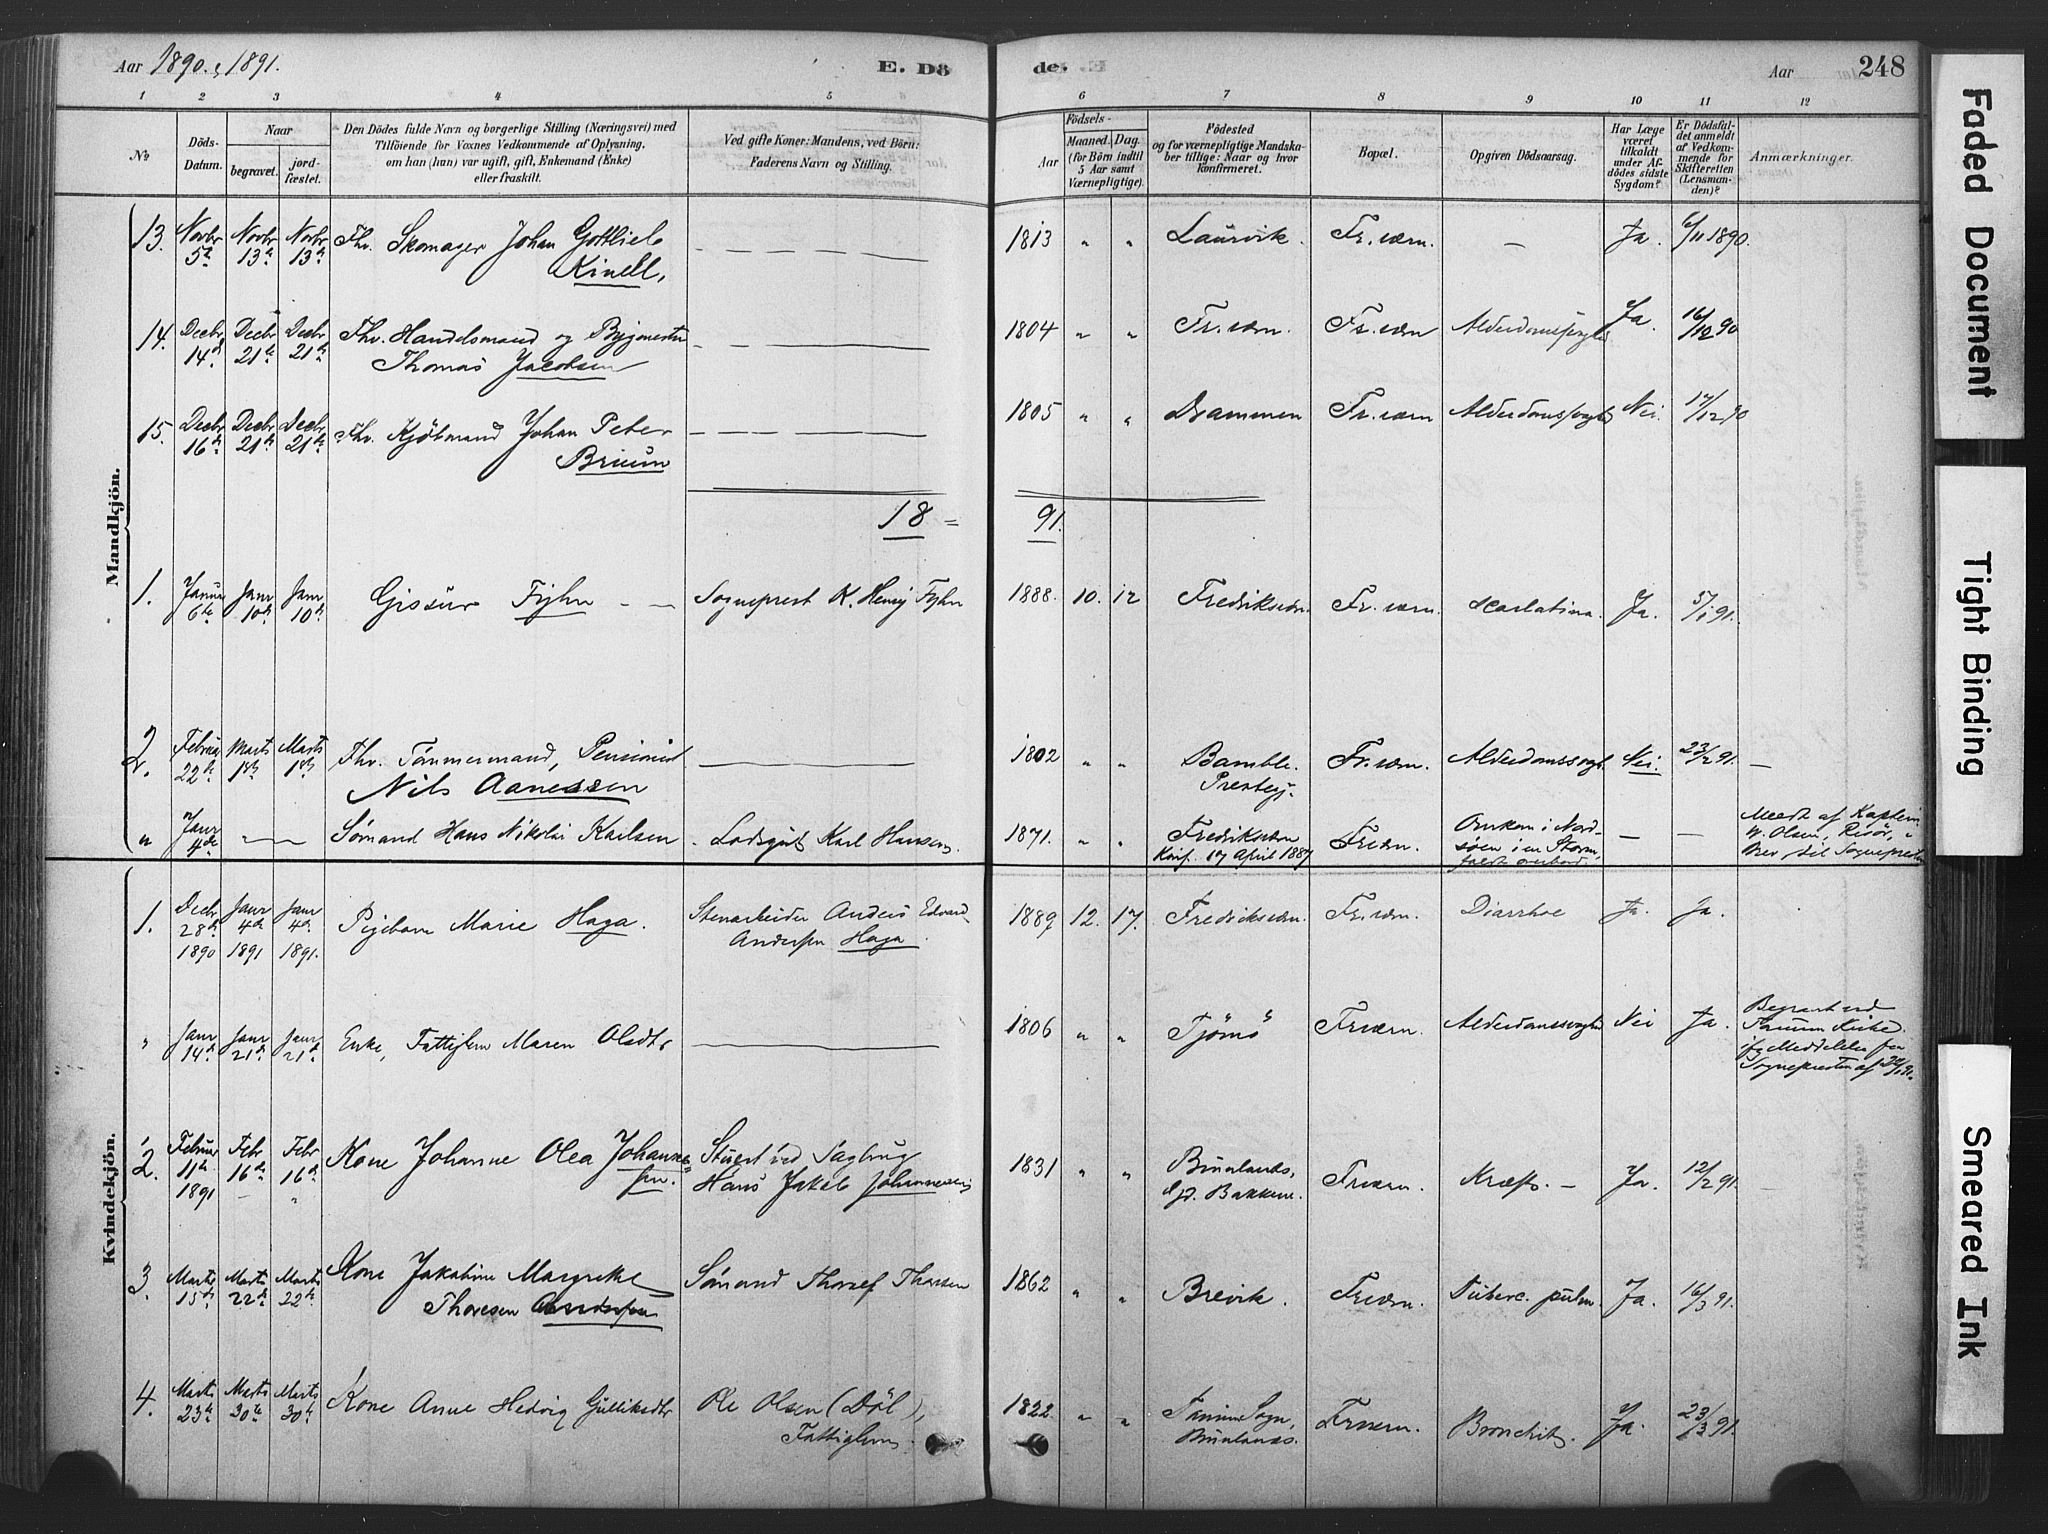 Aar 1890. & 1891.
E. Dö
de.
Aar
248
1 2 3 4 5 6 7 8 9 10 11 12
No
Döds-Datum.
Naar
begravet.
jord-fæstet.
Den Dödes fulde Navn og borgerlige Stilling (Næringsvei) med
Tilföiende for Voxnes Vedkommende af Oplysning,
om han (hun) var ugift, gift, Enkemand (Enke)
eller fraskilt.
Ved gifte Koner: Mandens, ved Börn:
Faderens Navn og Stilling.
Födsels-
Aar
Maaned. Dag.
(for Börn indtil
5 Aar samt
Værnepligtige).
Födested
og for værnepligtige Mandska-
ber tillige: Naar og hvor
konfirmeret.
Bopæl.
Opgiven Dödsaarsag.
Har Læge
været
tilkaldt
under Af-
dödes sidste
Sygdom?
Er Dödsfal-
det anmeldt
af Vedkom-
mende for
Skifteretten
(Lensman-
den)?
Anmærkninger.
Mandkjön.
13. Novbr 5te Novbr 13de Novbr 13de Fhv. Skomager Johan Gottlieb
Kinell, — — — — 1813 " " Laurvik. Fr.værn. — Ja. 6/11 1890.
14. Decbr 14de Decbr 21de Decbr 21de Fhv. Handelsmand og Bygmester
Thomas Jacobsen — — — — 1804 " " Fr.værn. Fr.værn Ja. 16/12 90
15. Decbr 16de Decbr 21de Decbr 21de Fhv. Kjöbmand Johan Peter
Bruun — — — — 1805 " " Drammen Fr.værn Nei. 17/12 90
18 = 91.
1. Januar 6te Janr 10de Janr 10de Gissur Fyhn — — Sogneprest K. Henrij Fyhn 1888. 10. 12 Fredriksværn Fr.værn. Scarlatina. Ja. 5/1 91.
2. Februar 22de Marts 1ste Marts 1ste Fhv. Tömmermand, Pensionist
Nils Aanessen — — — 1802 " " Bamble.
Prestegj. Fr.værn. Alderdomssvagh. Nei. 23/2 91. —
" Janr 4de — — Sömand Hans Nikolai Karlsen Lodsgut Karl Hansen. 1871. " " Fredriksværn
Konf. 17 April 1887 Frværn. Omkom i Nord-
söen i en Storm,
faldt overbord. — — Meddt af Kaptein
W. Olsen, Risör, i
Brev til Sognepresten
Kvindekjön.
1. Decbr 28de 1890 Janr 4de 1891 Janr 4de 1891. Pigebarn Marie Haga. Stenarbeider Anders Edvard
Andersen Haga. 1889 12. 17. Fredriksværn. Fr.værn. Diarrhoe Ja. Ja.
" Janr 14de Janr 21de Janr 21de Enke, Fattiglem Maren Olsdtr ——— 1806 " " Tjömö Frværn. Alderdomssvaghd Nei Ja. Begravet ved
Tanum Kirke.
ifg Meddelelse fra
Sognepresten af
2. Februar 11te 1891 Febr 16de Febr 16de Kone Johanne Olea Johanne-
sen. Stuert ved Sagbrug
Hans Jakob Johannesen 1831 " " Brunlanæs,
Bakkene. Frværn. Kræft. — Ja. 12/2 91. —
3. Marts 15de Marts 22de Marts 22de Kone Jakobine Margrethe
Thoresen Andersen Sömand Thoresen 1862 " " Brevik. Frværn. Tuberc. pulm. Ja. 16/3 91.
4. Marts 23de Marts 30te Marts 30te Kone Anne Hedvig Gulliksdtr Ole Olsen (Döl),
Fattiglem. 1822. " " Tanum Sogn,
Brunlanæs. Frværn. Bronchit. Ja. 23/3 91.
Faded Document
Tight Binding
Smeared Ink